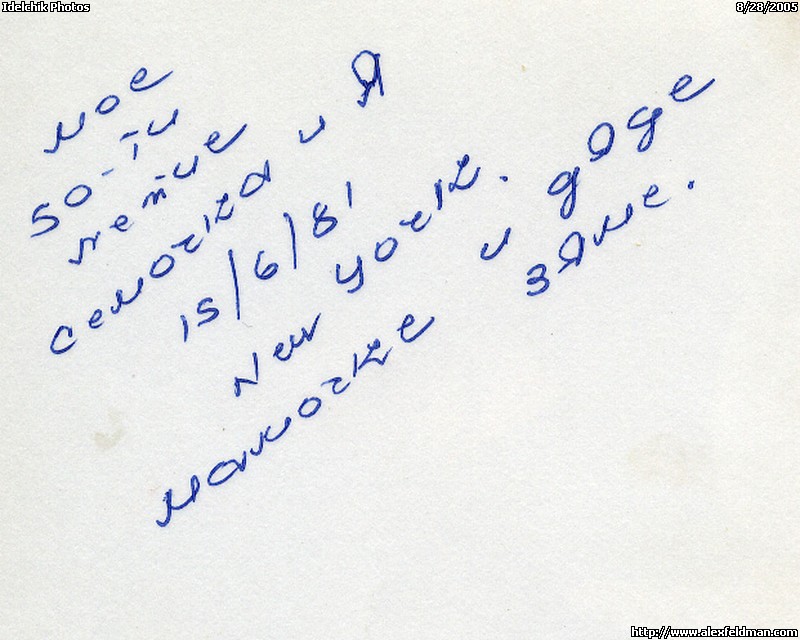 Idelchik Photos
8/28/2005
мое
50-ти
летие
Семочка и Я
15/6/81
New york.
мамочке и дяде
Зяме.
http://www.alexfeldman.com